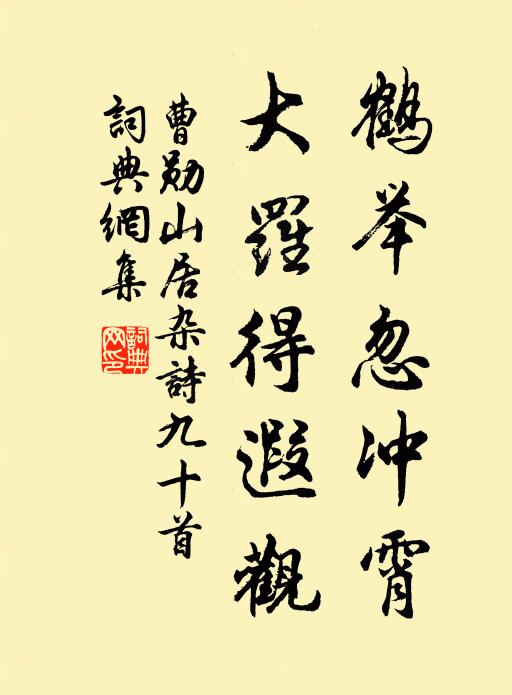 鹤举忽冲霄
大羅得遐觀
曹勋山居杂詩九十首
詞典網集
詞典網印